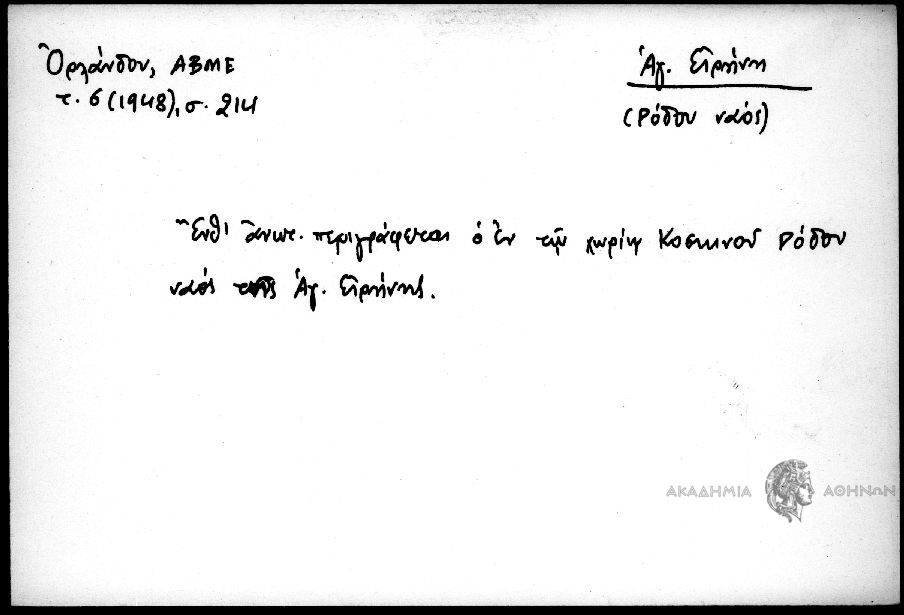 Ὀρλάνδου, ΑΒΜΕ
τ. 6 (1948), σ. 214
Ἁγ. Εἰρήνη
(Ρόδου ναός)
Ἔνθ' ἀνωτ. περιγράφεται ὁ ἐν τῷ χωρίῳ Κοσκινοῦ Ρόδου
ναός τῆς Ἁγ. Εἰρήνης.
ΑΚΑΔΗΜΙΑ ΑΘΗΝΩΝ